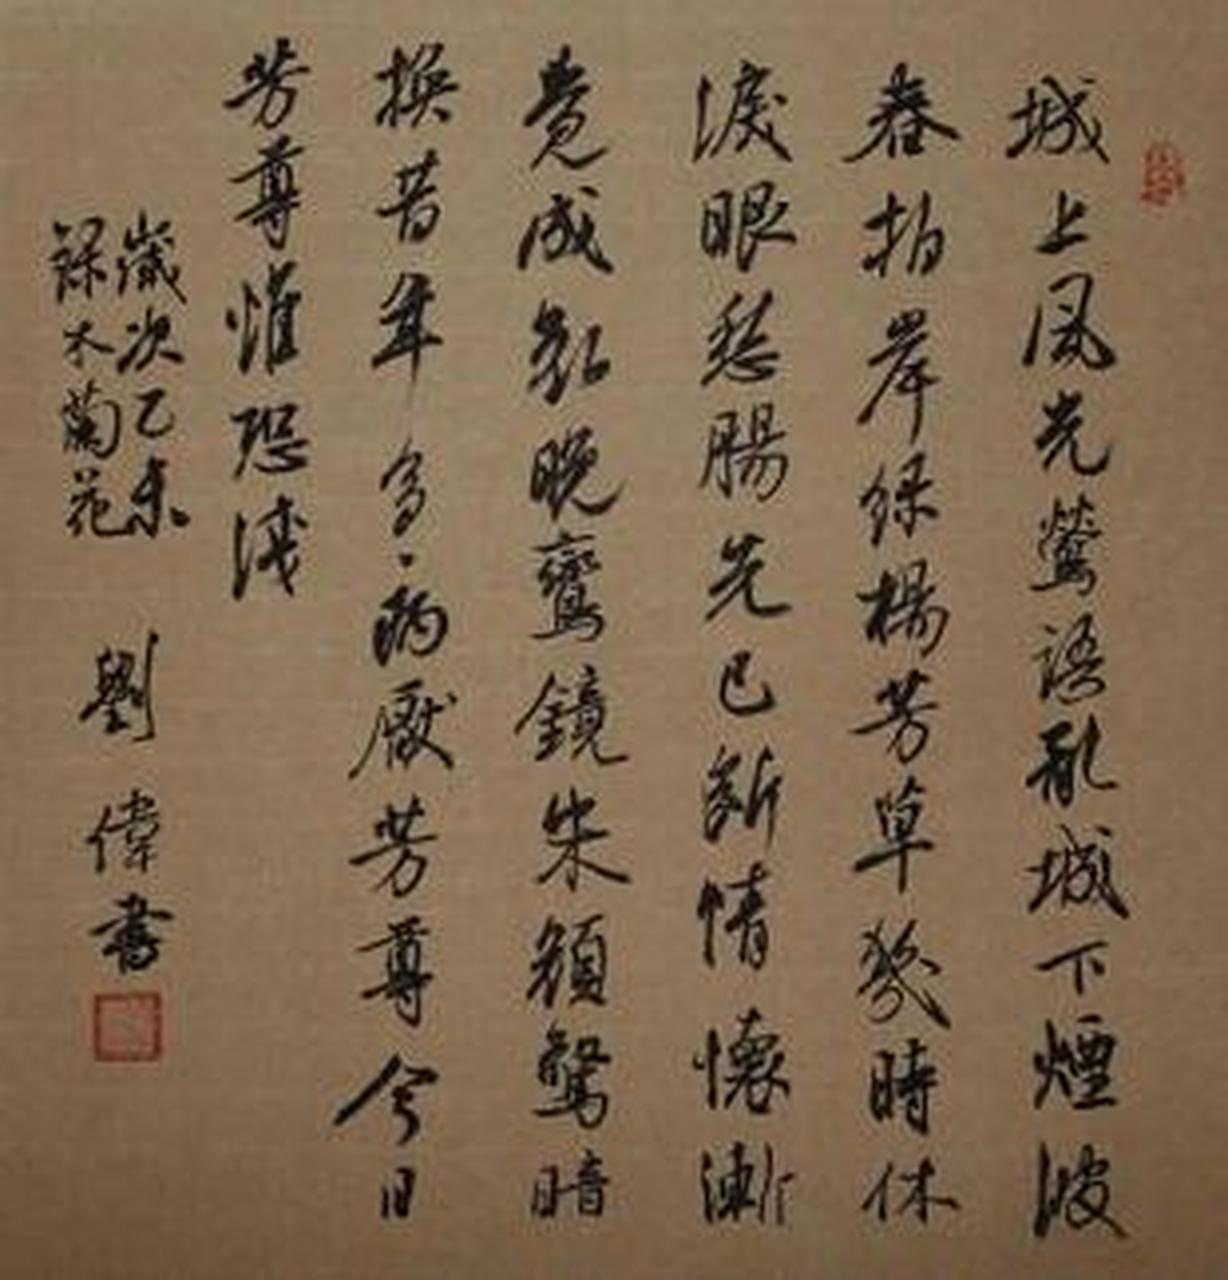 城上风光莺語亂城下煙波
春拍岸绿楊芳草幾時休
淚眼愁腸先已斷情懷漸
覺成衰晚鸞鏡朱顔驚暗
換昔年多病厭芳尊今日
芳尊惟恐淺
歲次乙未
錄木蘭花
劉偉書